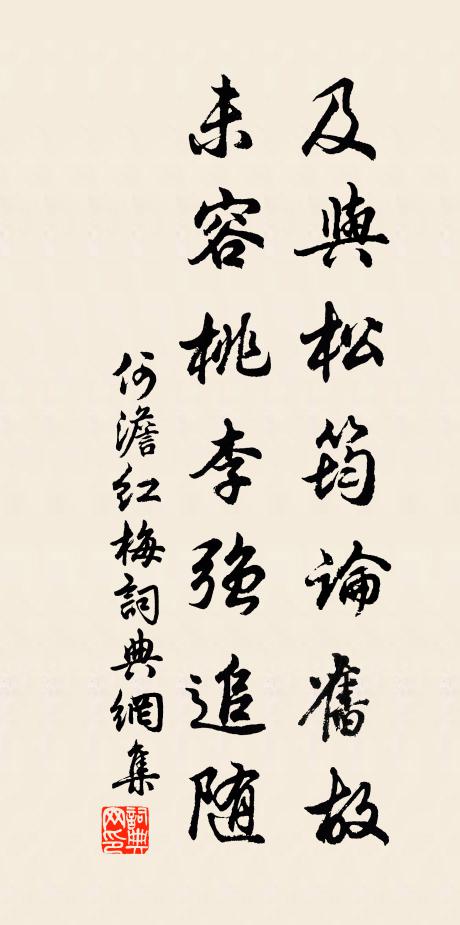 及與松筠論舊故
未容桃李強追随
何澹红梅詞典網集
詞典网印